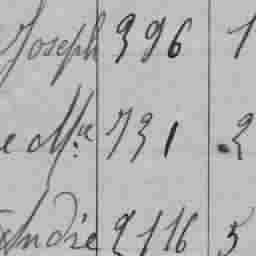 Joseph 396 1
e Mce 731 2
André 2116 5